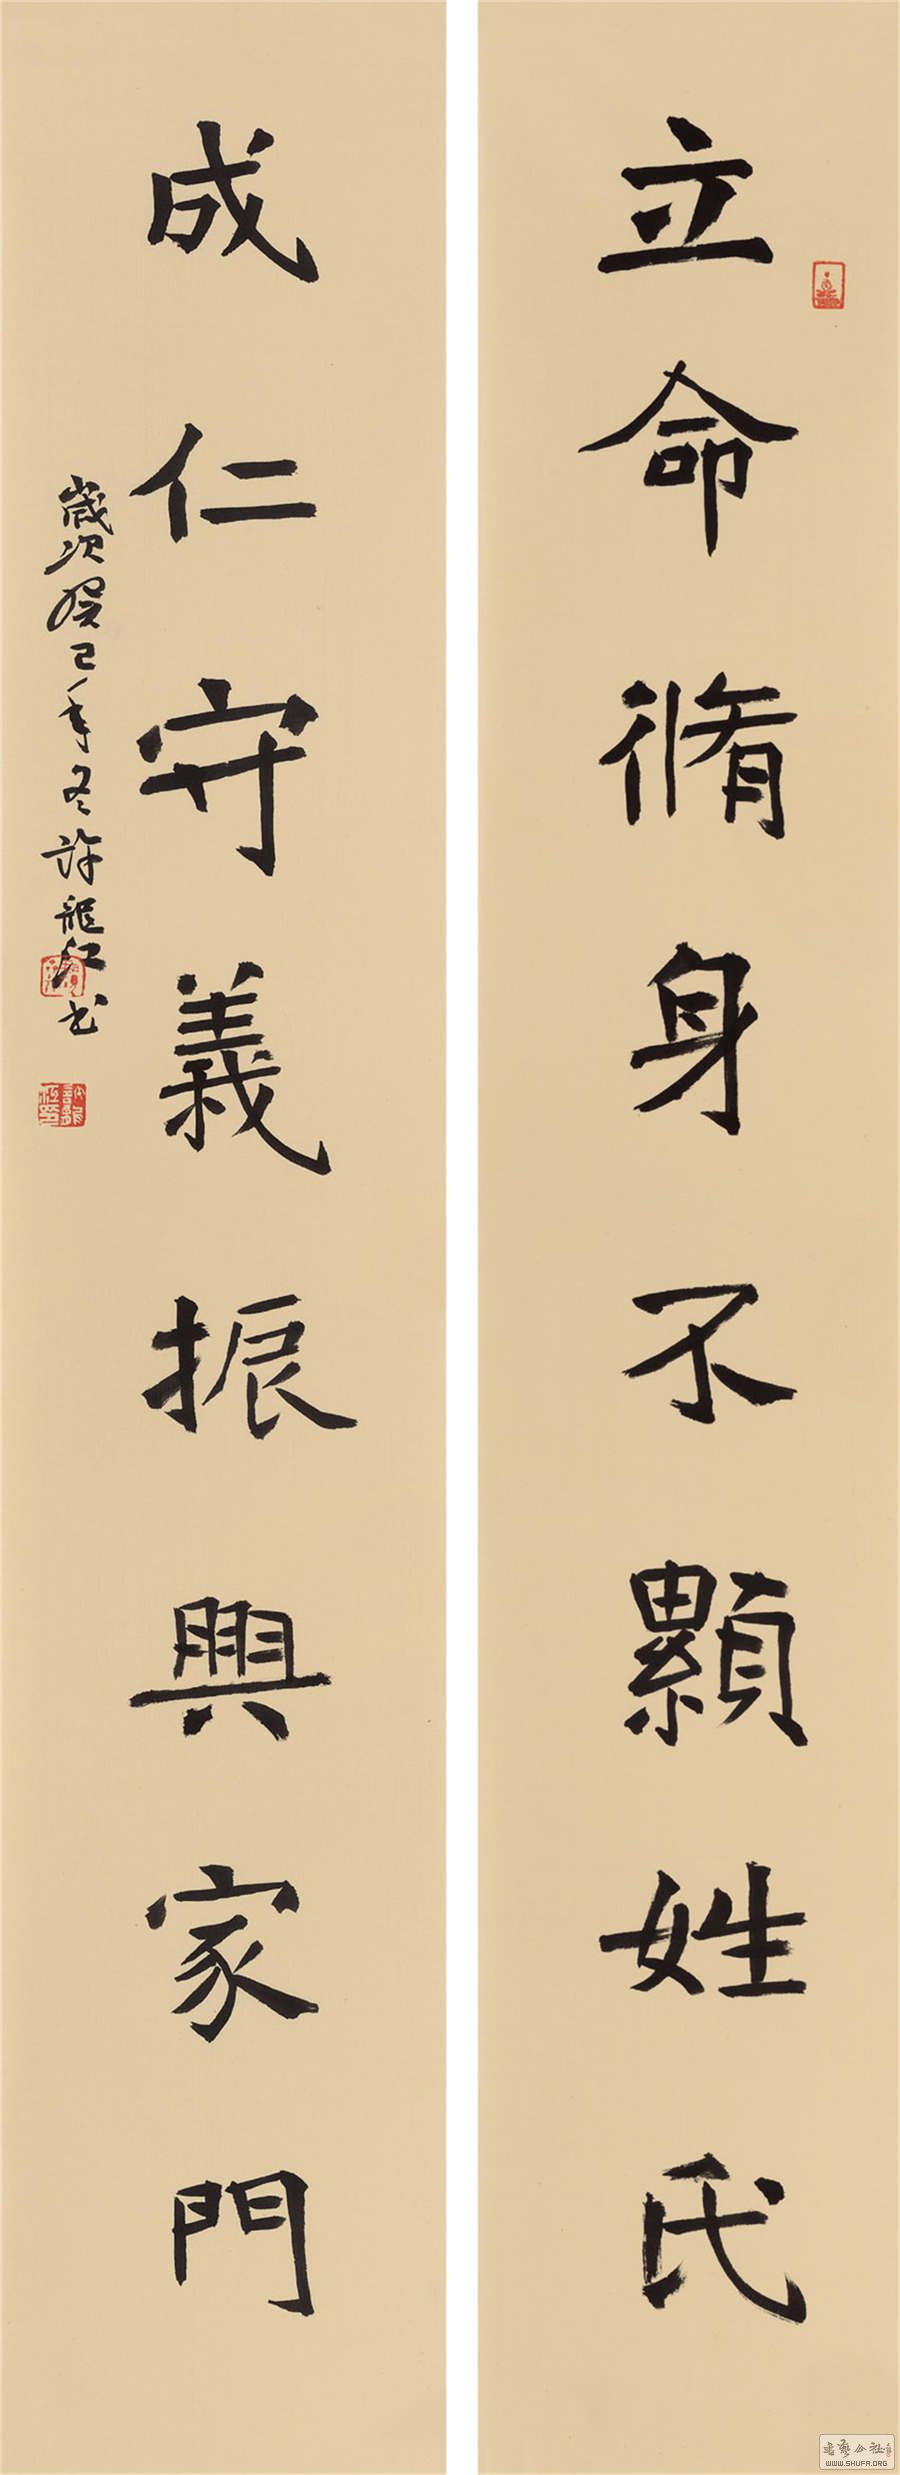 立命脩身不顯姓氏
成仁守義振興家門
歲次癸巳年冬許龍江书
WWW.SHUFA.ORG